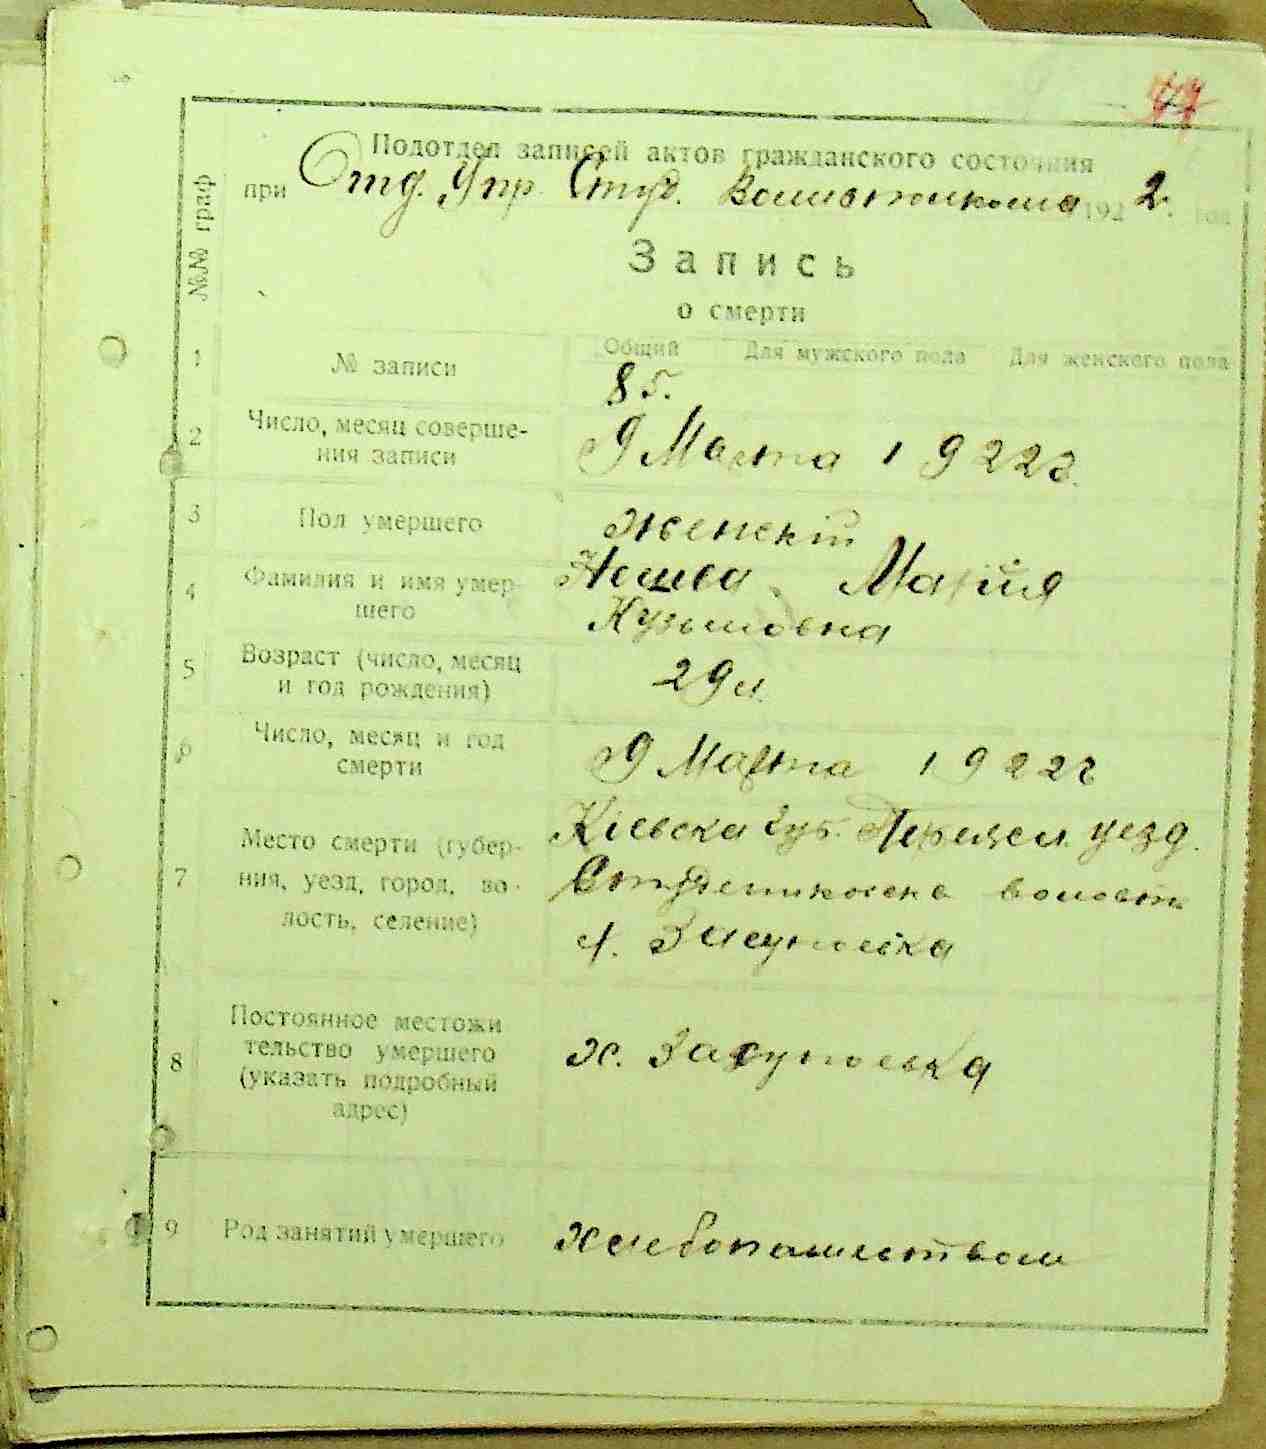 Подотдел записей актов гражданского состояния
при Отд. Упр. Студ. Волисполкома 1922. год
№№ граф
Запись
о смерти
Общий Для мужского пола Для женского пола
1 № записи 85.
2 Число, месяц соверше-
ния записи
9 Марта 1922г.
3 Пол умершего женскій
4 Фамилия и имя умер-
шего
Марія
Кузьмовна
5 Возраст (число, месяц
и год рождения)
29 л.
6 Число, месяц и год
смерти
9 Марта 1922г
7 Место смерти (губер-
ния, уезд, город, во-
лость, селение)
Кіевска губ. уезд.
волость
8 Постоянное местожи
тельство умершего
(указать подробный
адрес)
х. Засуповка
9 Род занятий умершего хлебопашеством